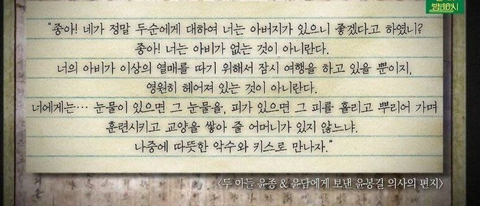 "종아! 네가 정말 두순에게 대하여 너는 아버지가 있으니 좋겠다고 하였니?
종아! 너는 아비가 없는 것이 아니란다.
너의 아비가 이상의 열매를 따기 위해서 잠시 여행을 하고 있을 뿐이지,
영원히 헤어져 있는 것이 아니란다.
너에게는… 눈물이 있으면 그 눈물을, 피가 있으면 그 피를 흘리고 뿌리어 가며
훈련시키고 교양을 쌓아 줄 어머니가 있지 않느냐.
나중에 따뜻한 악수와 키스로 만나자."
<두 아들 윤종 & 윤담에게 보낸 윤봉길 의사의 편지>